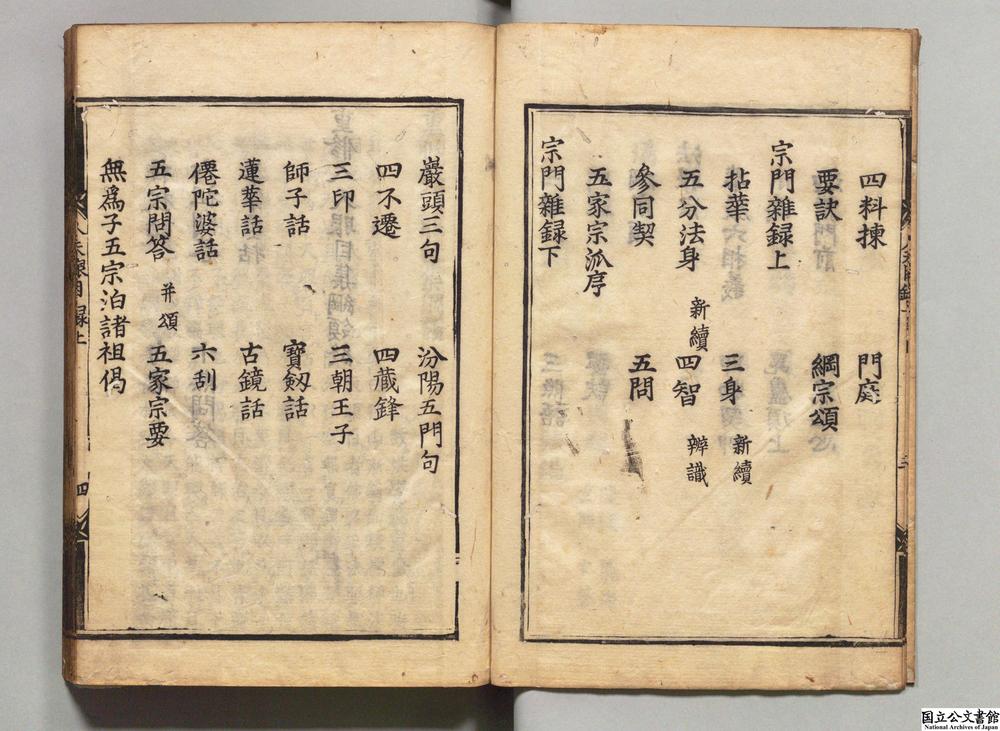 四料揀　門庭
要訣　綱宗頌
宗門雜録上
拈華　三身　新續
五分法身　新續　四智　辨識
參同契　五問
五家宗派序
宗門雜録下
巖頭三句　汾陽五門句
四不遷　四藏鋒
三印　三朝王子
師子話　寶劒話
蓮華話　古鏡話
僊陀婆話　六刮問答
五宗問答　并頌　五家宗要
無爲子五宗泊諸祖偈
四
国立公文書館
National Archives of Japan